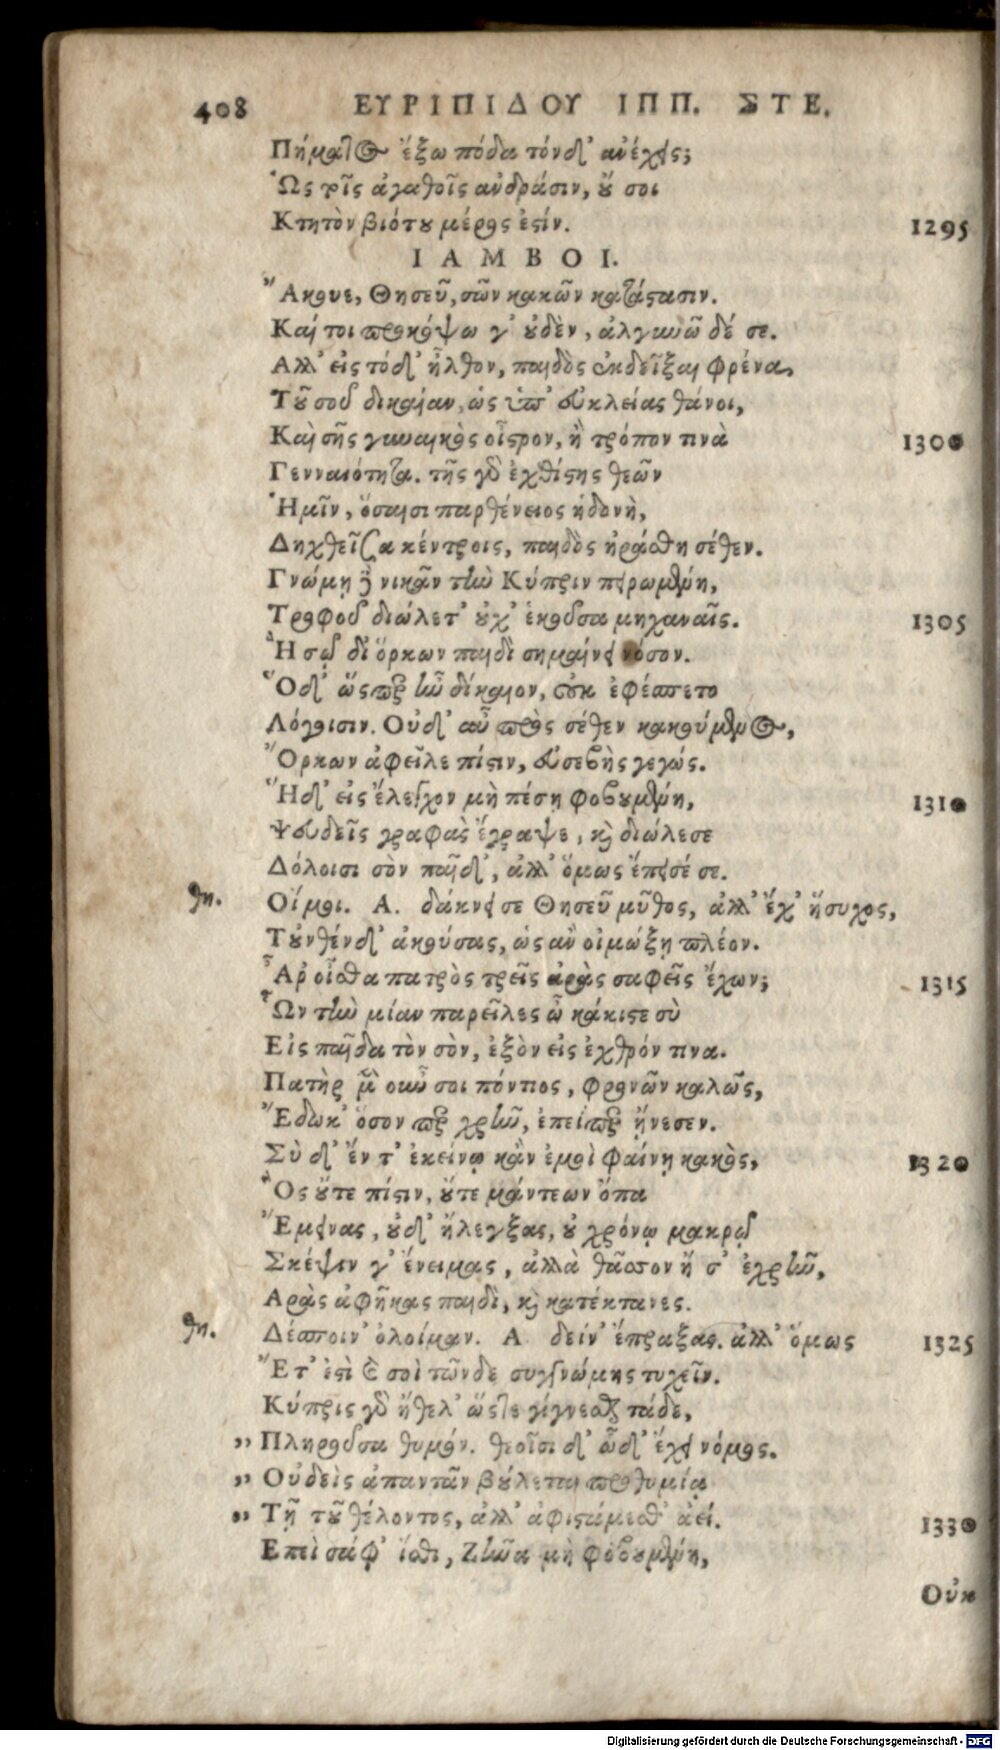 408 ΕΥΡΙΠΙΔΟΥ ΙΠΠ. ΣΤΕ.
Πήματος ἔξω πόδα τόνδ' ἀνέχεις;
Ὡς τοῖς ἀγαθοῖς ἀνδράσιν, οὔ σοι
Κτητὸν βιότου μέρος ἐστίν. 1295
ΙΑΜΒΟΙ.
Ἄκουε, Θησεῦ, σῶν κακῶν κατάστασιν.
Καί τοι προκόψω γ' οὐδὲν, ἀλγυνῶ δέ σε.
Ἀλλ' εἰς τόδ' ἦλθον, παιδὸς ἐκδεῖξαι φρένα,
Τοῦ σοῦ δικαίαν, ὡς ὑπ' εὐκλείας θάνοι,
Καὶ σῆς γυναικὸς οἶστρον, ἢ τρόπον τινὰ 1300
Γενναιότητα. τῆς γὰρ ἐχθίστης θεῶν
Ἡμῖν, ὅσαισι παρθένειος ἡδονὴ,
Δηχθεῖσα κέντροις, παιδὸς ἠράσθη σέθεν.
Γνώμῃ δὲ νικᾶν τὴν Κύπριν πειρωμένη,
Τροφοῦ διώλετ' οὐχ' ἑκοῦσα μηχαναῖς. 1305
Ἣ σῷ δι' ὅρκων παιδὶ σημαίνει νόσον.
Ὁ δ' ὥσπερ ἦν δίκαιον, οὐκ ἐφέσπετο
Λόγοισιν. Οὐδ' αὖ πρὸς σέθεν κακούμενος,
Ὅρκων ἀφεῖλε πίστιν, εὐσεβὴς γεγώς.
Ἡ δ' εἰς ἔλεγχον μὴ πέσῃ φοβουμένη, 1310
Ψευδεῖς γραφὰς ἔγραψε, καὶ διώλεσε
Δόλοισι σὸν παῖδ', ἀλλ' ὅμως ἔπεισέ σε.
Θη. Οἴμοι. Α. δάκνει σε Θησεῦ μῦθος, ἀλλ' ἔχ' ἥσυχος,
Τοὐνθένδ' ἀκούσας, ὡς ἂν οἰμώξῃ πλέον.
Ἆρ' οἶσθα πατρὸς τρεῖς ἀρὰς σαφεῖς ἔχων; 1315
Ὧν τὴν μίαν παρεῖλες ὦ κάκιστε σὺ
Εἰς παῖδα τὸν σὸν, ἐξὸν εἰς ἐχθρόν τινα.
Πατὴρ μὲν οὖν σοι πόντιος, φρονῶν καλῶς,
Ἔδωκ' ὅσον περ χρῆν, ἐπείπερ ᾔνεσεν.
Σὺ δ' ἔν τ' ἐκείνῳ κἀν ἐμοὶ φαίνῃ κακὸς, 1320
Ὃς οὔτε πίστιν, οὔτε μάντεων ὄπα
Ἔμεινας, οὐδ' ἤλεγξας, οὐ χρόνῳ μακρῷ
Σκέψιν γ' ἔνειμας, ἀλλὰ θᾶσσον ἤ σ' ἐχρῆν,
Ἀρὰς ἀφῆκας παιδὶ, καὶ κατέκτανες.
Θη. Δέσποιν' ὀλοίμαν. Α δείν' ἔπραξας. ἀλλ' ὅμως 1325
Ἔτ' ἐστὶ καὶ σοὶ τῶνδε συγγνώμης τυχεῖν.
Κύπρις γὰρ ἤθελ' ὥστε γίγνεσθαι τάδε,
,, Πληροῦσα θυμόν. θεοῖσι δ' ὧδ' ἔχει νόμος.
,, Οὐδεὶς ἀπαντᾶν βούλεται προθυμίᾳ
,, Τῇ τοῦ θέλοντος, ἀλλ' ἀφιστάμεσθ' ἀεί. 1330
Ἐπεὶ σάφ' ἴσθι, Ζῆνα μὴ φοβουμένη,
Οὐκ
Digitalisierung gefördert durch die Deutsche Forschungsgemeinschaft - DFG